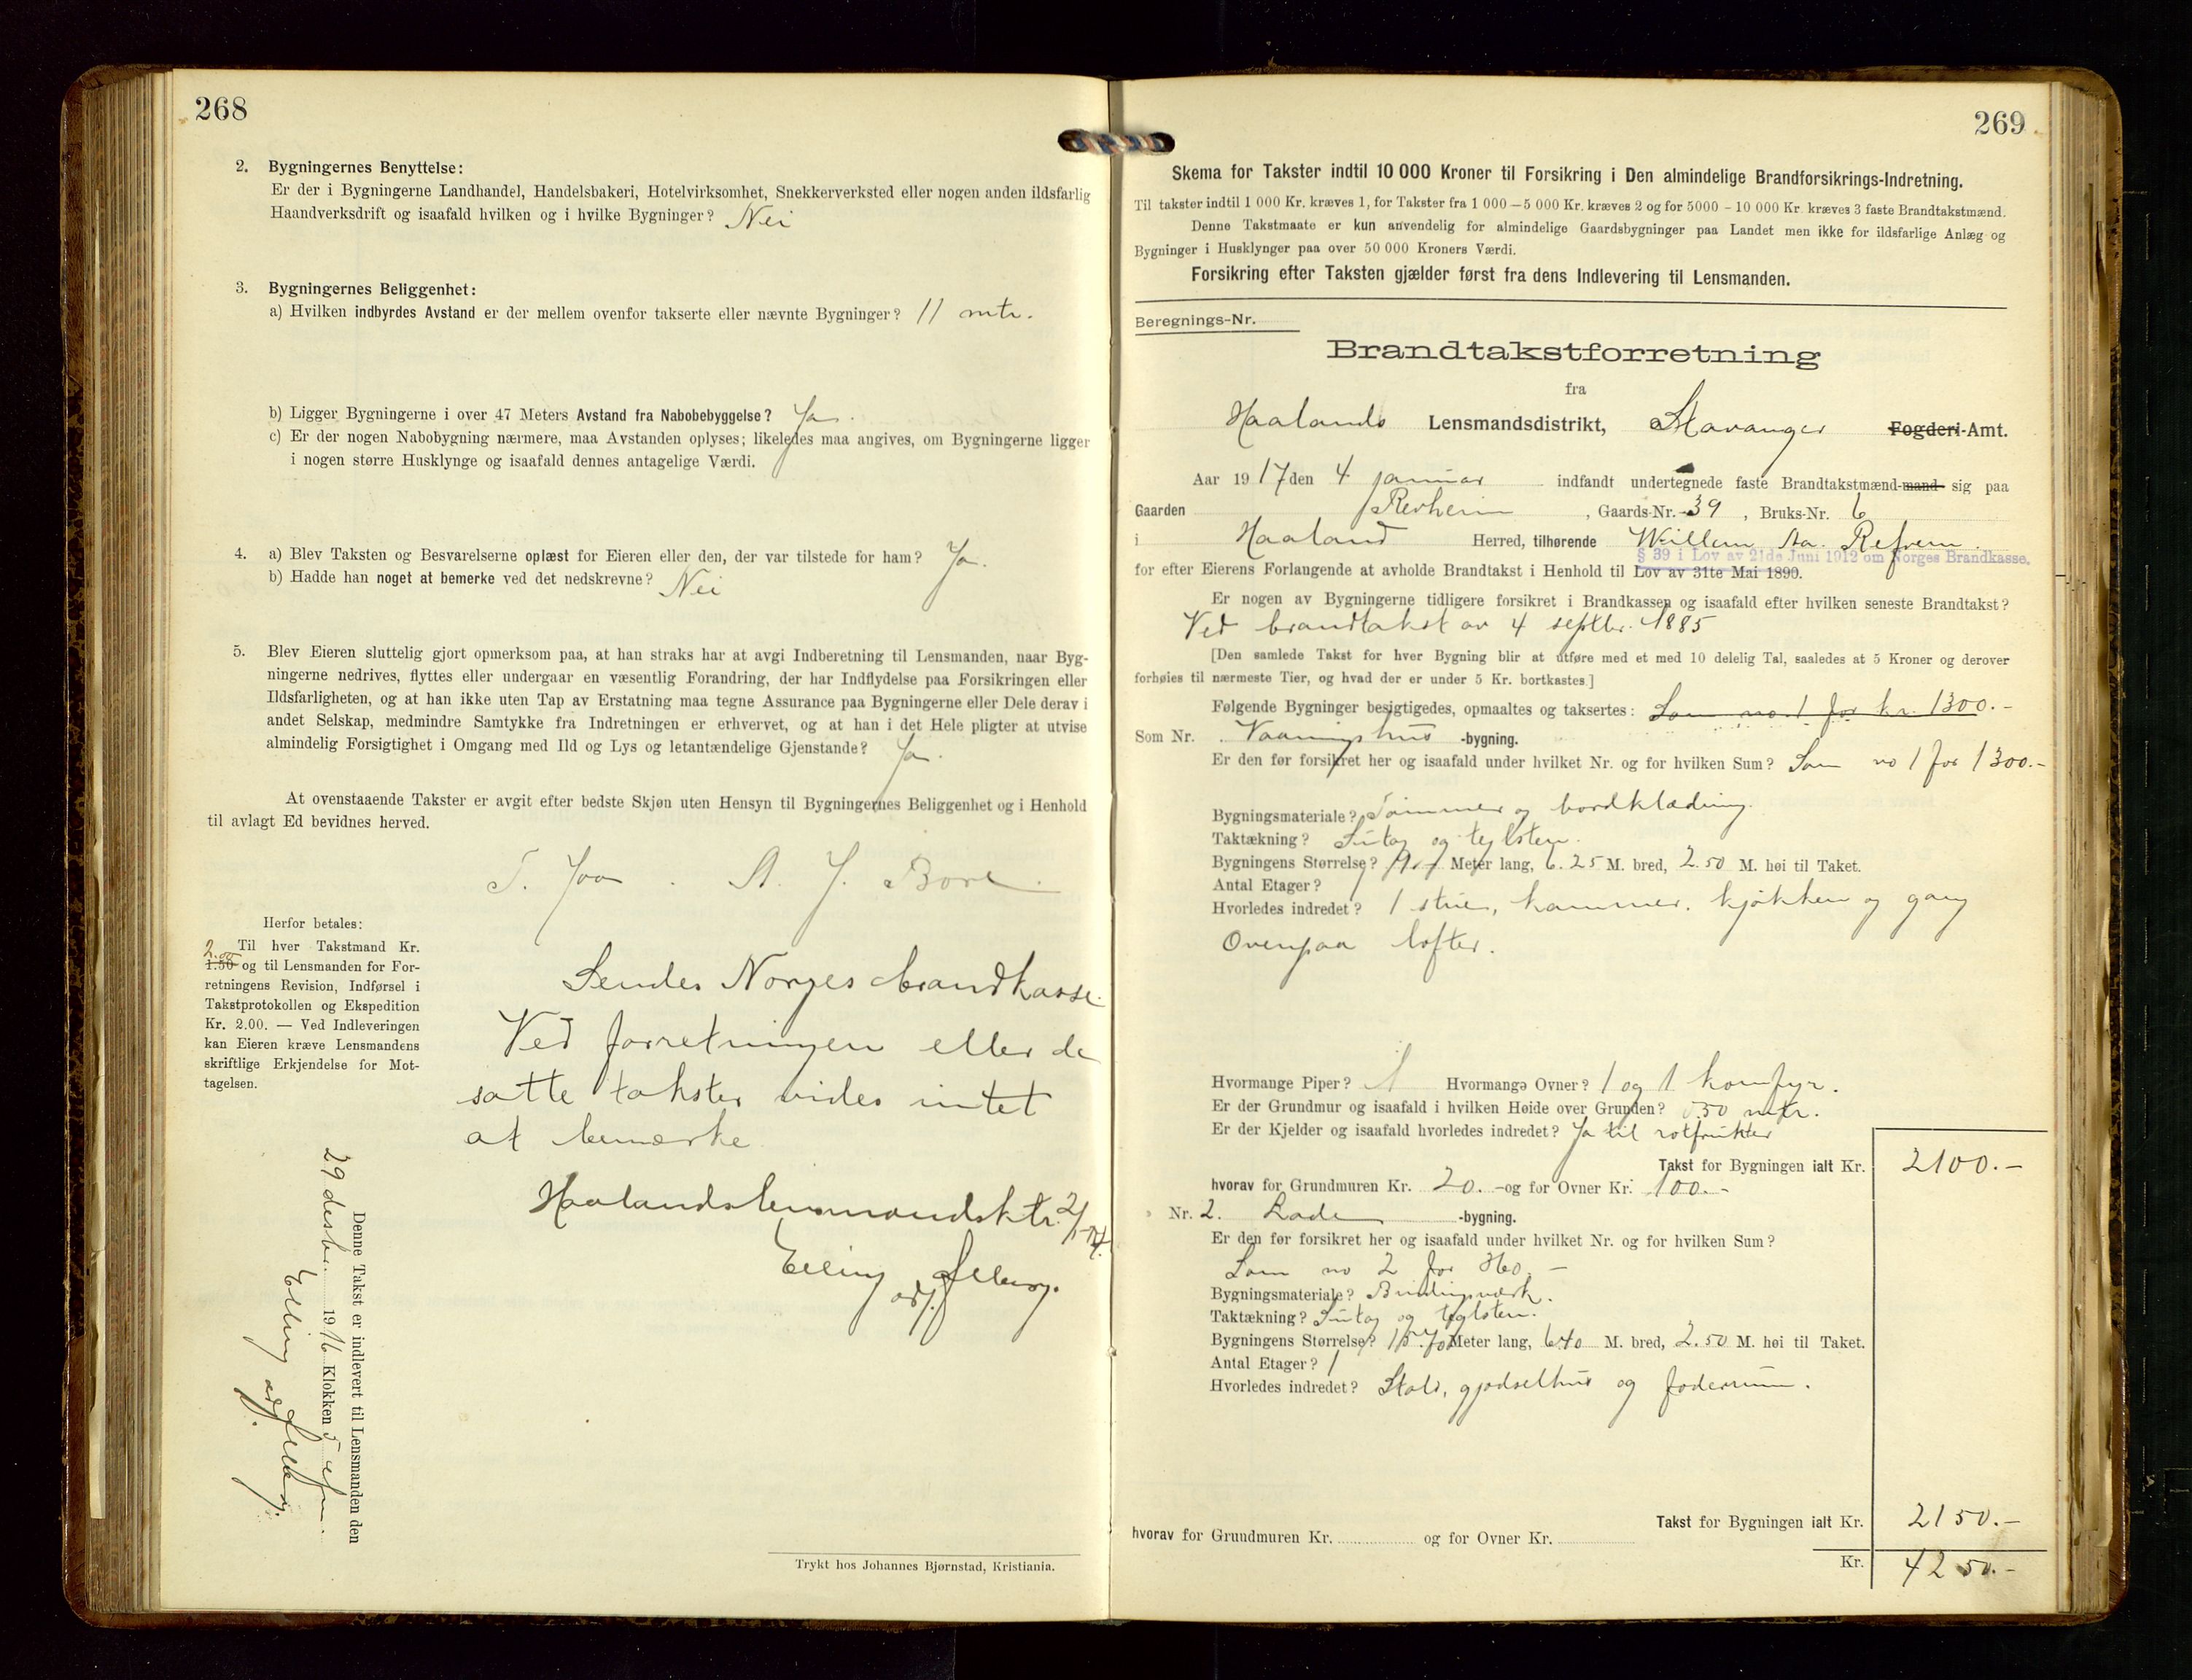 268
2. Bygningernes Benyttelse:
Er der i Bygningerne Landhandel, Handelsbakeri, Hotelvirksomhet, Snekkerverksted eller nogen anden ildsfarlig
Haandverksdrift og isaafald hvilken og i hvilke Bygninger? Nei
3. Bygningernes Beliggenhet:
a) Hvilken indbyrdes Avstand er der mellem ovenfor takserte eller nævnte Bygninger? 11 mtr.
b) Ligger Bygningerne i over 47 Meters Avstand fra Nabobebyggelse? Ja.
c) Er der nogen Nabobygning nærmere, maa Avstanden oplyses; likeledes maa angives, om Bygningerne ligger
i nogen større Husklynge og isaafald dennes antagelige Værdi.
4. a) Blev Taksten og Besvarelserne oplæst for Eieren eller den, der var tilstede for ham? Ja.
b) Hadde han noget at bemerke ved det nedskrevne? Nei
5. Blev Eieren sluttelig gjort opmerksom paa, at han straks har at avgi Indberetning til Lensmanden, naar Byg-
ningerne nedrives, flyttes eller undergaar en væsentlig Forandring, der har Indflydelse paa Forsikringen eller
Ildsfarligheten, og at han ikke uten Tap av Erstatning maa tegne Assurance paa Bygningerne eller Dele derav i
andet Selskap, medmindre Samtykke fra Indretningen er erhvervet, og at han i det Hele pligter at utvise
almindelig Forsigtighet i Omgang med Ild og Lys og letantændelige Gjenstande? Ja.
At ovenstaaende Takster er avgit efter bedste Skjøn uten Hensyn til Bygningernes Beliggenhet og i Henhold
til avlagt Ed bevidnes herved.
T. Joa. A. J. Bore.
Herfor betales:
Til hver Takstmand Kr.
2.00 1.50 og til Lensmanden for For-
retningens Revision, Indførsel i
Takstprotokollen og Ekspedition
Kr. 2.00. — Ved Indleveringen
kan Eieren kræve Lensmandens
skriftlige Erkjendelse for Mot-
tagelsen.
Sendes Norges brandkasse.
Ved forretningen eller de
satte takster vides intet
at bemerke
Haalands lensmandsktr. 2/1-17.
Elling
adj.
Denne Takst er indlevert til Lensmanden den
29 desbr. 1916 Klokken 5 efm.
Elling
adj.
Trykt hos Johannes Bjørnstad, Kristiania.
269
Skema for Takster indtil 10 000 Kroner til Forsikring i Den almindelige Brandforsikrings-Indretning.
Til takster indtil 1 000 Kr. kræves 1, for Takster fra 1 000 — 5 000 Kr. kræves 2 og for 5000 - 10 000 Kr. kræves 3 faste Brandtakstmænd.
Denne Takstmaate er kun anvendelig for almindelige Gaardsbygninger paa Landet men ikke for ildsfarlige Anlæg og
Bygninger i Husklynger paa over 50 000 Kroners Værdi.
Forsikring efter Taksten gjælder først fra dens Indlevering til Lensmanden.
Beregnings-Nr.
Brandtakstforretning
fra
Haalands Lensmandsdistrikt, Stavanger Fogderi-Amt.
Aar 1917 den 4 januar indfandt undertegnede faste Brandtakstmænd-mand sig paa
Gaarden Revheim, Gaards-Nr. 39, Bruks-Nr. 6
i Haaland Herred, tilhørende Willem Aa. Refvem.
§ 39 i Lov av 21de Juni 1912 om Norges Brandkasse.
for efter Eierens Forlangende at avholde Brandtakst i Henhold til Lov av 31te Mai 1890.
Er nogen av Bygningerne tidligere forsikret i Brandkassen og isaafald efter hvilken seneste Brandtakst?
Ved brandtakst av 4 septbr. 1885
[Den samlede Takst for hver Bygning blir at utføre med et med 10 delelig Tal, saaledes at 5 Kroner og derover
forhøies til nærmeste Tier, og hvad der er under 5 Kr. bortkastes.]
Følgende Bygninger besigtigedes, opmaaltes og taksertes: Som no 1 for kr. 1300.-
Som Nr. Vaaningshus -bygning.
Er den før forsikret her og isaafald under hvilket Nr. og for hvilken Sum? Som no 1 for 1300.-
Bygningsmateriale? Tømmer og bordklædning.
Taktækning? Sutag og teglsten.
Bygningens Størrelse? Meter lang, 6.25 M. bred, 2.50 M. høi til Taket.
Antal Etager? 1
Hvorledes indredet? 1 stue, kammer, kjøkken og gang
Ovenpaa lofter.
Hvormange Piper? 1 Hvormange Ovner? 1 og 1 komfyr.
Er der Grundmur og isaafald i hvilken Høide over Grunden? 0.50 mtr.
Er der Kjelder og isaafald hvorledes indredet? Ja til rotfrukter
Takst for Bygningen ialt Kr. 2100.-
hvorav for Grundmuren Kr. 20.- og for Ovner Kr. 100.-
Nr. 2. Lade -bygning.
Er den før forsikret her og isaafald under hvilket Nr. og for hvilken Sum?
Som no 2 for 360.-
Bygningsmateriale? Bindingsværk.
Taktækning? Sutag og teglsten.
Bygningens Størrelse? 15.70 Meter lang, 6.40 M. bred, 2.50 M. høi til Taket.
Antal Etager? 1
Hvorledes indredet? Stald, gjødselhus og foderrum.
Takst for Bygningen ialt Kr. 2150.-
hvorav for Grundmuren Kr. og for Ovner Kr.
Kr. 4250.-